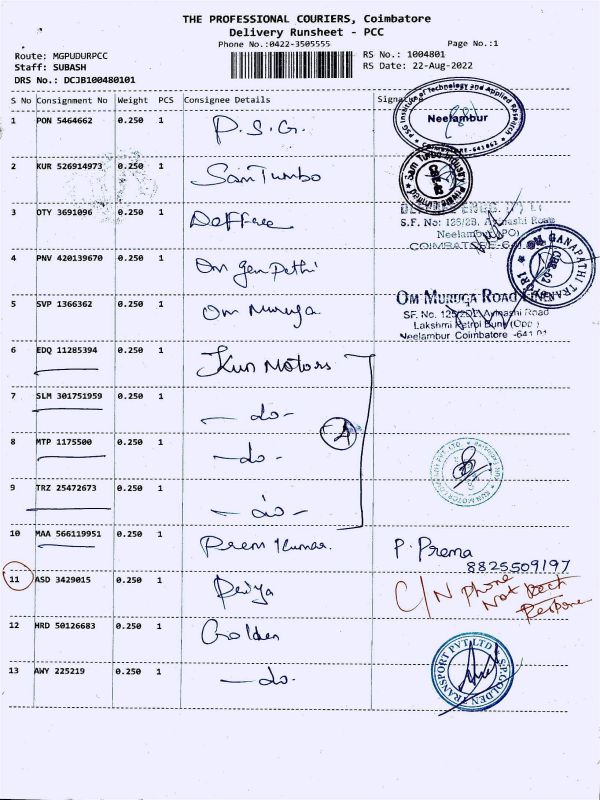 THE PROFESSIONAL COURIERS, Coimbatore
Delivery Runsheet - PCC
Phone No.:0422-3505555
Page No.:1
Route: MGPUDURPCC
RS No.: 1004801
Staff: SUBASH
RS Date: 22-Aug-2022
DRS No.: DCJB100480101
S No Consignment No Weight PCS Consignee Details Signature
1 PON 5464662 0.250 1 P.S.G.
PSG Institute of Technology and Applied Research
Neelambur
COIMBATORE-641062
2 KUR 526914973 0.250 1 Sam Turbo
Sam Turbo Industry Private Limited
3 OTY 3691096 0.250 1
S.F. No: 125/2B, Avinashi Road
Neelambur (PO)
4 PNV 420139670 0.250 1 Om
OM GANAPATHI
5 SVP 1366362 0.250 1 Om Muruga
OM MURUGA ROAD LINES
Avinashi Road
Lakshmi Petrol Bunk
Neelambur Coimbatore
6 EDQ 11285394 0.250 1 Kun Motors
7 SLM 301751959 0.250 1 -do-
8 MTP 1175500 0.250 1 -do-
9 TRZ 25472673 0.250 1 -do-
4
10 MAA 566119951 0.250 1 Prem Kumar.
P. Prema
8825509197
11 ASD 3429015 0.250 1
C/N Phone
Not
12 HRD 50126683 0.250 1 Golden
13 AWY 225219 0.250 1 -do-
S.P. GOLDEN TRANSPORT PVT LTD